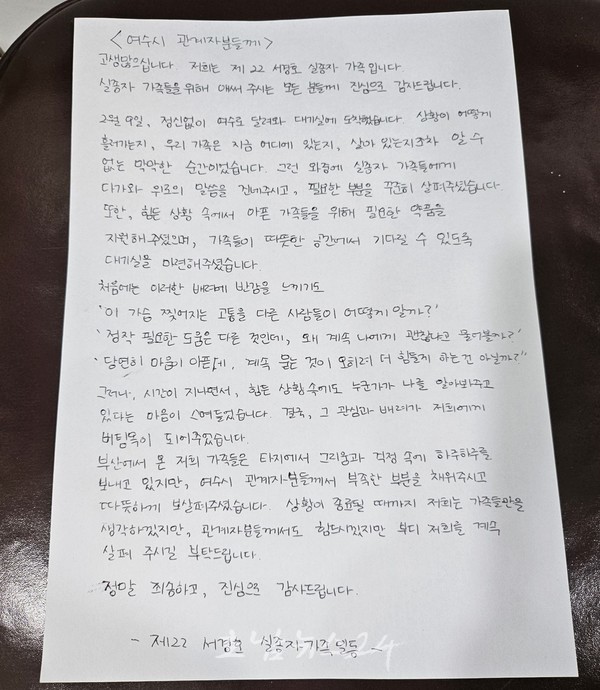 <여수시 관계자분들께>
고생많으십니다. 저희는 제22 서경호 실종자 가족입니다.
실종자 가족들을 위해 애써 주시는 모든 분들께 진심으로 감사드립니다.
2월 9일, 정신없이 여수로 달려와 대기실에 도착했습니다. 상황이 어떻게
흘러가는지, 우리 가족은 지금 어디에 있는지, 살아 있는지조차 알 수
없는 막막한 순간이었습니다. 그런 와중에 실종자 가족들에게
다가와 위로의 말씀을 건네주시고, 필요한 부분을 꾸준히 살펴주셨습니다.
또한, 힘든 상황 속에서 아픈 가족들을 위해 필요한 약품을
지원해주셨으며, 가족들이 따뜻한 공간에서 기다릴 수 있도록
대기실을 마련해주셨습니다.
처음에는 이러한 배려에 반감을 느끼기도
'이 가슴 찢어지는 고통을 다른 사람들이 어떻게 알까?'
'정작 필요한 도움은 다른 것인데, 왜 계속 나에게 괜찮냐고 물어볼까?'
'당연히 마음이 아픈데, 계속 묻는 것이 오히려 더 힘들지 하는건 아닐까?'
그러나, 시간이 지나면서, 힘든 상황속에도 누군가가 나를 알아봐주고
있다는 마음이 스며들었습니다. 결국, 그 관심과 배려가 저희에게
버팀목이 되어주었습니다.
부산에서 온 저희 가족들은 타지에서 그리움과 걱정 속에 하루하루를
보내고 있지만, 여수시 관계자분들께서 부족한 부분을 채워주시고
따뜻하게 보살펴주셨습니다. 상황이 종료될 때까지 저희는 가족들만을
생각하겠지만, 관계자분들께서도 힘드시겠지만 부디 저희를 계속
살펴 주시길 부탁드립니다.
정말 죄송하고, 진심으로 감사드립니다.
- 제22 서경호 실종자가족 일동 -
호남뉴스24